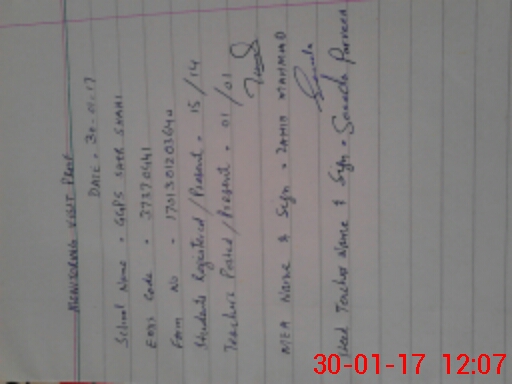 MONITORING VISIT PROOF
DATE = 30-01-17
School Name = GGPS SHAHI
EMIS Code = 37370441
Form No =
Students Registered / Present = 15 / 14
Teachers Posted / Present = 01 / 01
MEA Name & Sign = ZAHID MAHMOOD
Head Teacher Name & Sign = Parveen
30-01-17 12:07